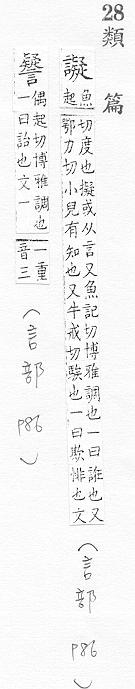 28類篇
譺 魚起切度也擬或从言又魚記切博雅調也一曰誰也又鄂力切小兒有知也又牛戒切騃也一曰欺悱也文 (言部 P86)
譬 偶起切博雅調也一曰詒也文一 一重音三 (言部 P86)